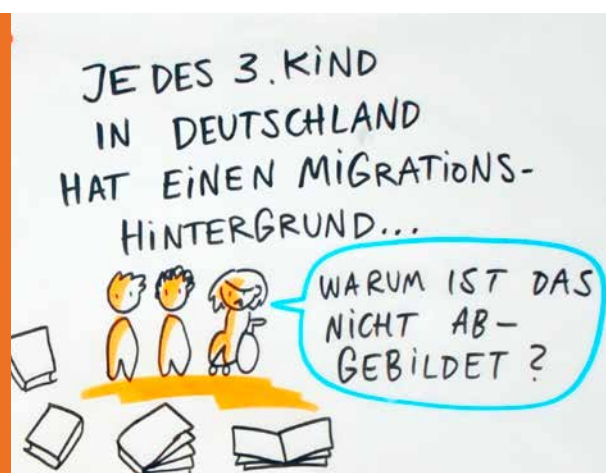 JEDES 3. KIND
IN DEUTSCHLAND
HAT EINEN MIGRATIONS-
HINTERGRUND...
WARUM IST DAS
NICHT AB-
GEBILDET?